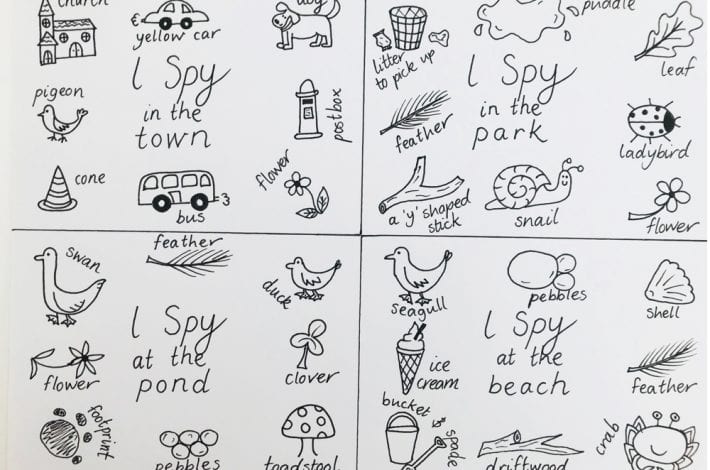 church
yellow car
dog
I Spy
in the
town
pigeon
postbox
cone
bus
flower
litter
to pick up
puddle
leaf
I Spy
in the
park
feather
ladybird
a 'y' shaped
stick
snail
flower
swan
feather
duck
I Spy
at the
pond
flower
clover
footprint
pebbles
toadstool
seagull
pebbles
shell
I Spy
at the
beach
ice
cream
feather
bucket
spade
driftwood
crab